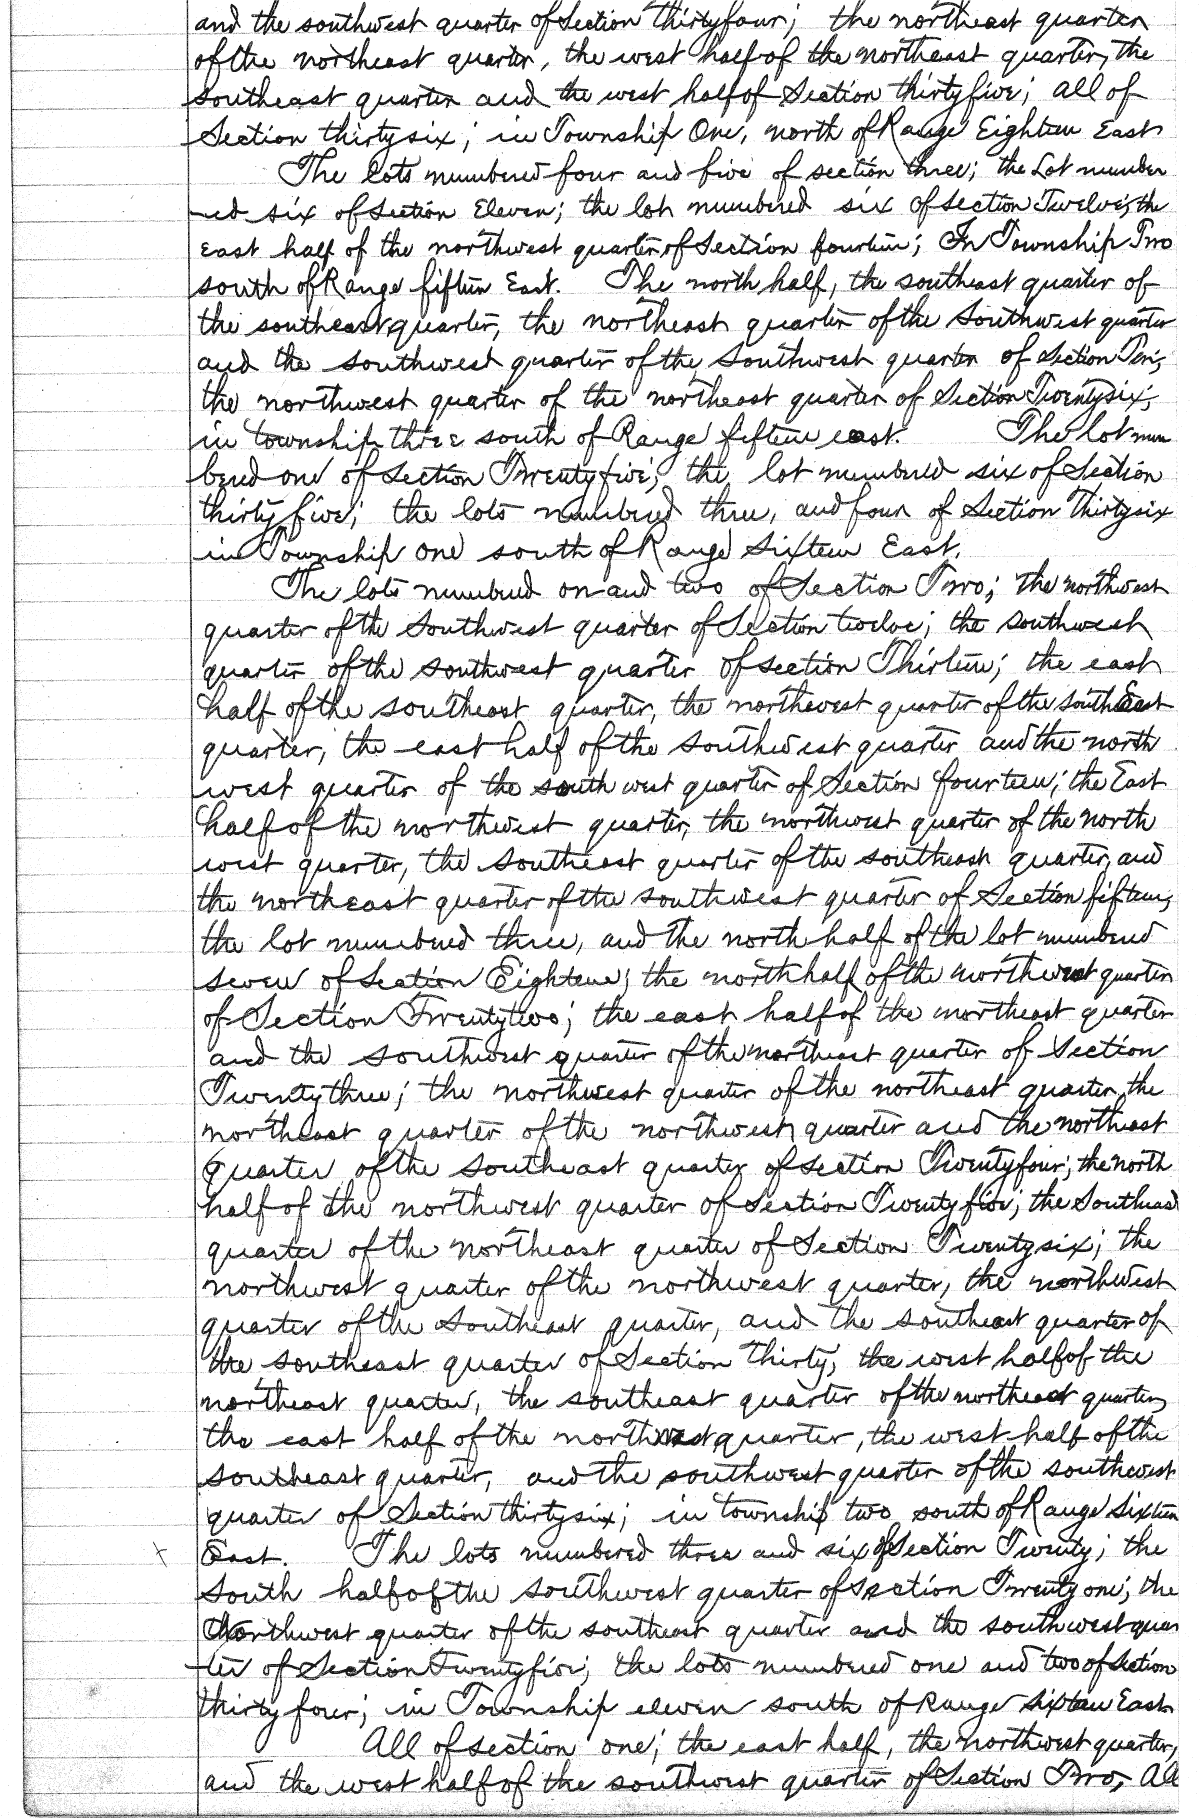 and the southwest quarter of Section thirtyfour; the northeast quarter
of the northeast quarter, the west half of the northeast quarter, the
southeast quarter and the west half of Section thirtyfive; all of
Section thirtysix; in Township One, north of Range Eighteen East
The lots numbered four and five of section three; the Lot number
-ed six of Section Eleven; the lot numbered six of Section Twelve; the
East half of the northwest quarter, of Section fourteen; In Township Two
south of Range fifteen East. The north half, the southeast quarter of
the southeast quarter, the northeast quarter of the Southwest quarter
and the southwest quarter of the Southwest quarter of Section Ten;
the northwest quarter of the northeast quarter of Section Twentysix;
in township three south of Range fifteen east. The lot num
bered one of Section Twentyfive; the lot numbered six of Section
thirty five; the lots numbered three, and four of Section Thirtysix
in Township one south of Range Sixteen East.
The lots numbered on and two of Section Two; the northwest
quarter of the Southwest quarter of Section twelve; the southwest
quarter of the southwest quarter of section Thirteen; the east
half of the southeast quarter, the northwest quarter of the southEast
quarter, the east half of the southwest quarter and the north
west quarter of the south west quarter of Section fourteen; the East
half of the northwest quarter, the northwest quarter of the north
west quarter, the southeast quarter of the southeast quarter, and
the northeast quarter of the southwest quarter of Section fifteen;
the lot numbered three, and the north half of the lot numbered
seven of Section Eighteen; the north half of the northwest quarter
of Section Twentytwo; the east half of the northeast quarter
and the southwest quarter of the northeast quarter of Section
Twentythree; the northwest quarter of the northeast quarter, the
northeast quarter of the northwest quarter and the northeast
quarter of the southeast quarter of section Twentyfour; the north
half of the northwest quarter of Section Twenty five; the Southeast
quarter of the northeast quarter of Section Twentysix; the
northwest quarter of the northwest quarter, the northwest
quarter of the southeast quarter, and the southeast quarter of
the southeast quarter of Section Thirty, the west half of the
northeast quarter, the southeast quarter of the northeast quarter,
the east half of the northwest quarter, the west half of the
southeast quarter, and the southwest quarter of the southwest
quarter of Section thirtysix; in township two south of Range Sixteen
East. The lots numbered three and six of Section Twenty; the
South half of the southwest quarter of section Twenty one; the
Northwest quarter of the southeast quarter and the southwest quar
-ter of Section Twentyfive; the lots numbered one and two of Section
thirty four; in Township eleven south of Range sixteen East
All of section one; the east half, the northwest quarter,
and the west half of the southwest quarter of Section Two; All